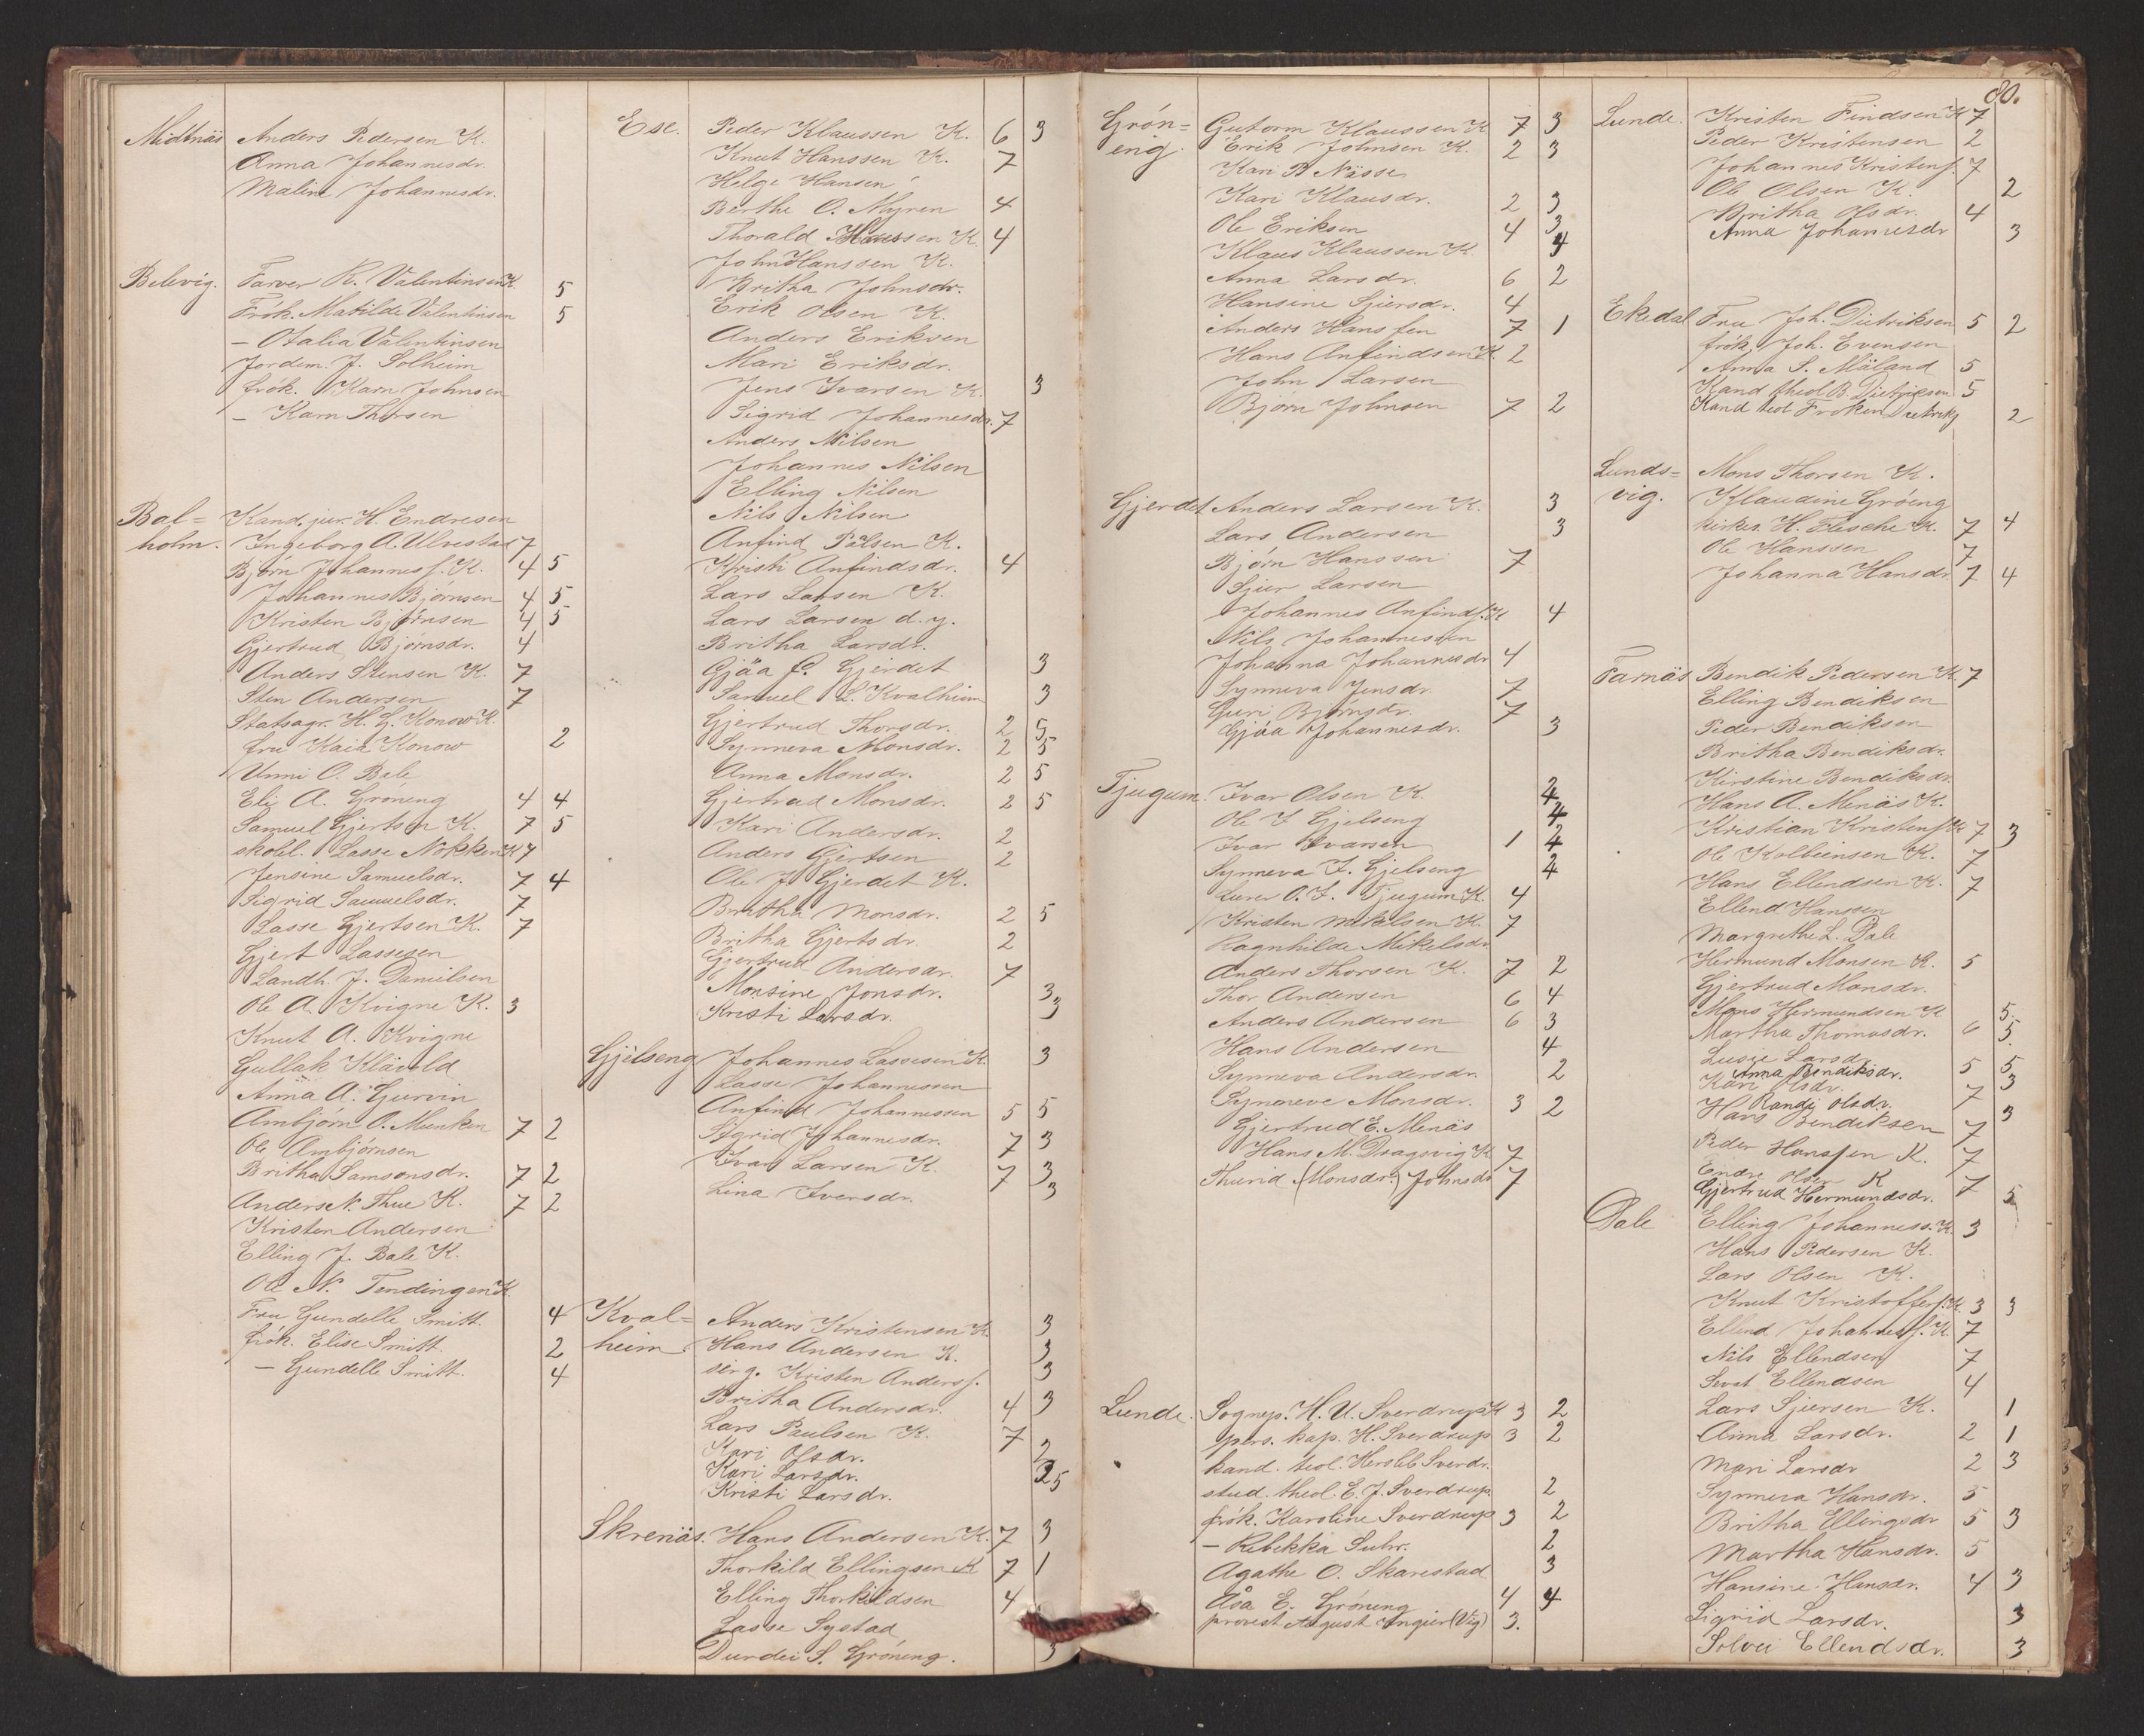 Midtnäs Anders Pedersen K.
Anna Johannesdr.
Malin Johannesdr.
Belevig. Farver R. Valentinsen K. 5
Frök. Matilde Valentinsen 5
— Otalia Valentinsen
Jordem. J. Solheim
frök. Karn Johnsen
— Karn Thorsen
Bal= Kand. jur. H. Endresen
holm. Ingeborg A. Ulvestad 7
Bjørn Johannes f. K. 4 5
Johannes Bjørnsen 4 5
Kristen Bjørnsen 4 5
Gjertrud Bjørnsdr. 4
Anders Stensen K. 7
Sten Andersen 7
Statsagr. H. G. Konow K.
fru Kaia Konow 2
Unni O. Bale
Eli A. Gröneng 4 4
Samuel Gjertsen K. 7 5
skolel. Lasse Nökken K 7
Jensine Samuelsdr. 7 4
Sigrid Samuelsdr. 7
Lasse Gjertsen K. 7
Gjert Lassesen
Landh. J. Danielsen
Ole A. Kvigne K. 3
Knut A. Kvigne
Gullak Klävold
Anna A. Gurvin
Ambjörn O. Munken 7 2
Ole Ambjörnsen
Britha Samsonsdr. 7 2
Anders N. Thue K. 7 2
Kristen Andersen
Elling J. Bale K.
Ole N. Tendingen K
Fru Gundelle Smitt. 4
frök. Elise Smitt. 2
— Gundelle Smitt. 4
Ese. Peder Klaussen K. 6 3
Knut Hanssen K. 7
Helge Hansen
Berthe O. Myren 4
Thorald Hanssen K. 4
John Hanssen K.
Britha Johnsdr.
Erik Olsen K.
Anders Eriksen
Mari Eriksdr.
Jens Ivarsen K. 3
Sigrid Johannesdr. 7
Anders Nilsen
Johannes Nilsen
Elling Nilsen
Nils Nilsen
Anfind Pålsen K.
Kristi Anfindsdr. 4
Lars Larsen K.
Lars Larsen d. y.
Britha Larsdr.
Gjäa C. Gjerdet 3
Samuel L. Kvalheim 3
Gjertrud Thorsdr. 2 5
Synneva Monsdr. 2 5
Anna Monsdr. 2 5
Gjertrud Monsdr. 2 5
Kari Andersdr. 2
Anders Gjertsen 2
Ole J. Gjerdet K.
Britha Monsdr. 2 5
Britha Gjertsdr. 2
Gjertrud Andersdr. 7
Monsine Jonsdr. 3
Kristi Larsdr. 3
Gjelseng Johannes Lassesen K. 3
Lasse Johannessen
Anfind Johannessen 5 5
Sigrid Johannesdr. 7 3
Ivar Larsen K. 7 3
Lina Iversdr. 3
Kval= Anders Kristensen K 3
heim Hans Andersen K. 3
serg. Kristen Anders f. 3
Britha Andersdr. 4 3
Lars Paulsen K. 7
Kari Olsdr. 2
Kari Larsdr. 3
Kristi Larsdr. 25
Skrenäs. Hans Andersen K. 7 3
Thorkild Ellingsen K 7 1
Elling Thorkildsen 4
Lasse Systad
Durdei S. Gröneng. 3
80.
Grön= Gutorm Klaussen K. 7 3
eng. Erik Johnsen K. 2 3
Kari P. Nässe
Kari Klausdr. 2 3
Ole Eriksen 4 3
Klaus Klaussen K. 4
Anna Larsdr. 6 2
Hansine Sjursdr. 4
Anders Hansfen 7 1
Hans Anfindsen K. 2
John Larsen
Bjørn Johnsen 7 2
Gjerdet Anders Larsen K. 3
Lars Andersen 3
Bjørn Hanssen 7
Sjur Larsen
Johannes Anfinds f. K 4
Nils Johannessen
Johanna Johannesdr 4
Synneva Jensdr. 7
Guri Bjørnsdr. 7
Gjöa Johannesdr. 3
Tjugum. Ivar Olsen K. 4
Ole I Gjelseng 4
Ivar Ivarsen 1 4
Synneva I. Gjelseng 4
Lärer O. I. Tjugum K. 4
Kristen Mikkelsen K. 7
Ragnhilde Mikelsdr.
Anders Thorsen K. 7 2
Thor Andersen 6 4
Anders Andersen 6 3
Hans Andersen 4
Synneva Andersdr. 2
Synneve Monsdr. 3 2
Gjertrud E. Menäs
Hans M. Dragsvig K 7
Thurid (Monsdr.) Johnsdr 7
Lunde. Sognep. H. U. Sverdrup K 3 2
pers. kap. H. Sverdrup 3 2
kand. teol. Herslib Sverdr.
stud. theol. E. J. Sverdrup 2
frök. Karoline Sverdrup 3 2
— Rebekka Suhr. 2
Agathe O. Skarestad 3
Åsa E. Gröneng 4 4
provest August Angier (Vig) 3.
Lunde. Kristen Findsen K 7
Peder Kristensen 2
Johannes Kristen f. 7
Ole Olsen K. 2
Britha Olsdr. 4
Anna Johannesdr 3
Ekedal Fru Joh. Dietriksen 5 2
frök. Joh. Evensen
Anna S. Mäland 5
Kand theol B. Dietriksen 5
Kand teol Fröken Dietriks 2
Lunds= Mons Thorsen K.
vig. Klaudine Gröeng
kirkes. H. Flesche K. 7 4
Ole Hanssen 7
Johanna Hansdr. 7 4
Farnäs Bendik Pedersen K. 7
Elling Bendiksen
Peder Bendiksen
Britha Bendiksdr.
Kirstine Bendiksdr.
Hans A. Menäs K.
Kristian Kristens f. K 7 3
Ole Kolbeinsen K. 7
Hans Ellendsen K. 7
Ellend Hanssen
Margrethe L. Dale
Hermund Monsen K. 5
Gjertrud Monsdr.
Mons Hermundsen K 5.
Martha Thomasdr. 6 5.
Lusie Larsdr. 5 5
Anna Bendiksdr. 3
Kari Olsdr. 7
Randi Olsdr. 3
Hans Bendiksen 7
Peder Hansfen K. 7
Endre Olsen K 7
Gjertrud Hermundsdr. 5
Dale Elling Johanness. K. 3
Hans Pedersen K.
Lars Olsen K.
Knut Kristoffers f. K. 3 3
Ellend Johannes f. K. 7
Nils Ellendsen 7
Sevat Ellendsen 4
Lars Sjursen K. 1
Anna Larsdr. 2 1
Mari Larsdr 2 3
Synneva Hansdr. 5
Britha Ellingsdr 5 3
Martha Hansdr. 5
Hansine Hansdr. 4 3
Sigrid Larsdr. 3
Solvei Ellendsdr. 3